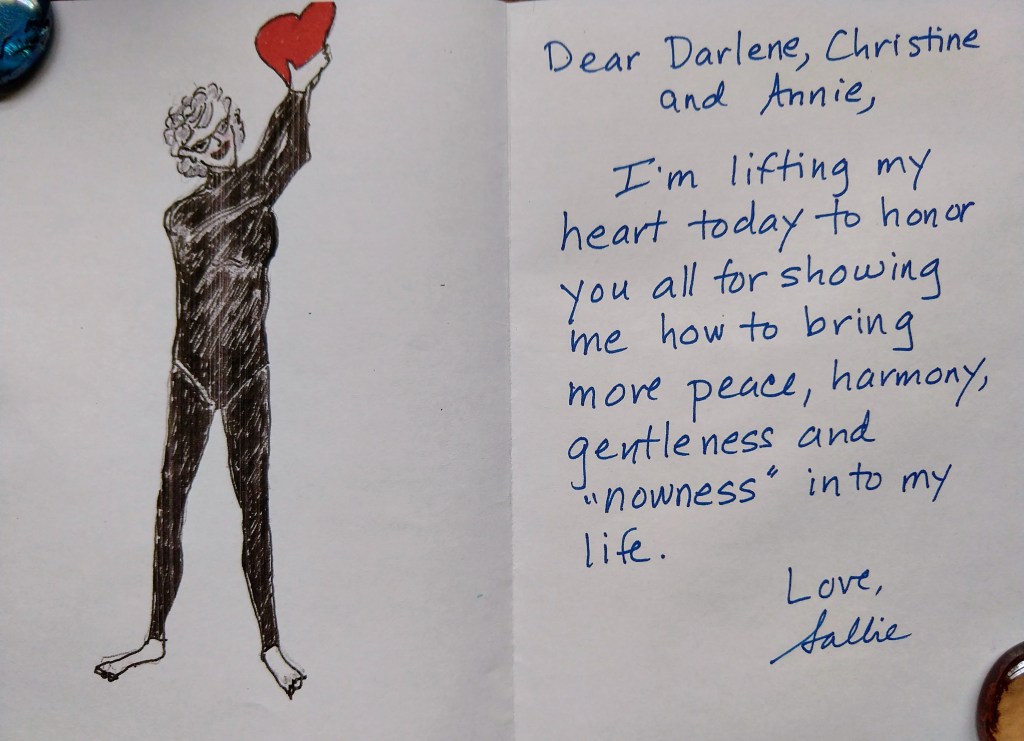 Dear Darlene, Christine
and Annie,
I'm lifting my
heart today to honor
you all for showing
me how to bring
more peace, harmony,
gentleness and
"nowness" into my
life.
Love,
Sallie